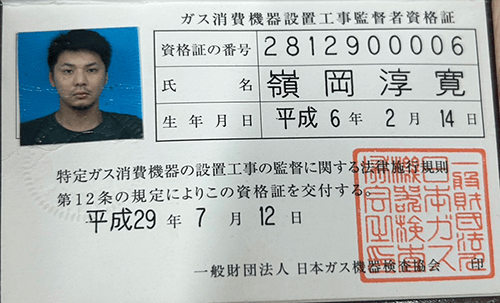 ガス消費機器設置工事監督者資格証
資格証の番号 2812900006
氏名 嶺岡淳寛
生年月日 平成6年2月14日
特定ガス消費機器の設置工事の監督に関する法律施行規則
第12条の規定によりこの資格証を交付する。
平成29年7月12日
一般財団法人 日本ガス機器検査協会 印